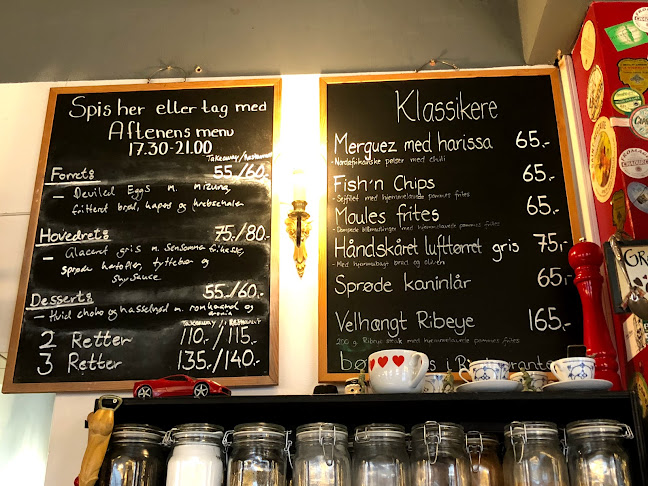 Spis her eller tag med
Aftenens menu
17.30-21.00
Takeaway/Restaurant
Forret: 55/60,-
- Deviled Eggs m. mizuna,
fritteret brød, kapers og krebsehaler
Hovedret: 75,-/80,-
- Glaceret gris m. sensommer
sprøde kartofler, tyttebær og
Dessert: 55/60.-
- Hvid choko og hasselnød m. romkaramel og
Takeaway / i Restaurant
2 Retter 110,-/115,-
3 Retter 135/140,-
Klassikere
Merguez med harissa 65,-
- Nordafrikanske pølser med chili
Fish'n Chips 65,-
- Sejfilet med hjemmelavede pommes frites
Moules frites 65,-
- Dampede blåmuslinger med hjemmelavede pommes frites
Håndskåret lufttørret gris 75,-
- Med hjemmebagt brød og oliven
Sprøde kaninlår 65,-
Velhængt Ribeye 165,-
200 g. Ribeye steak med hjemmelavede pommes frites
i Ristorante